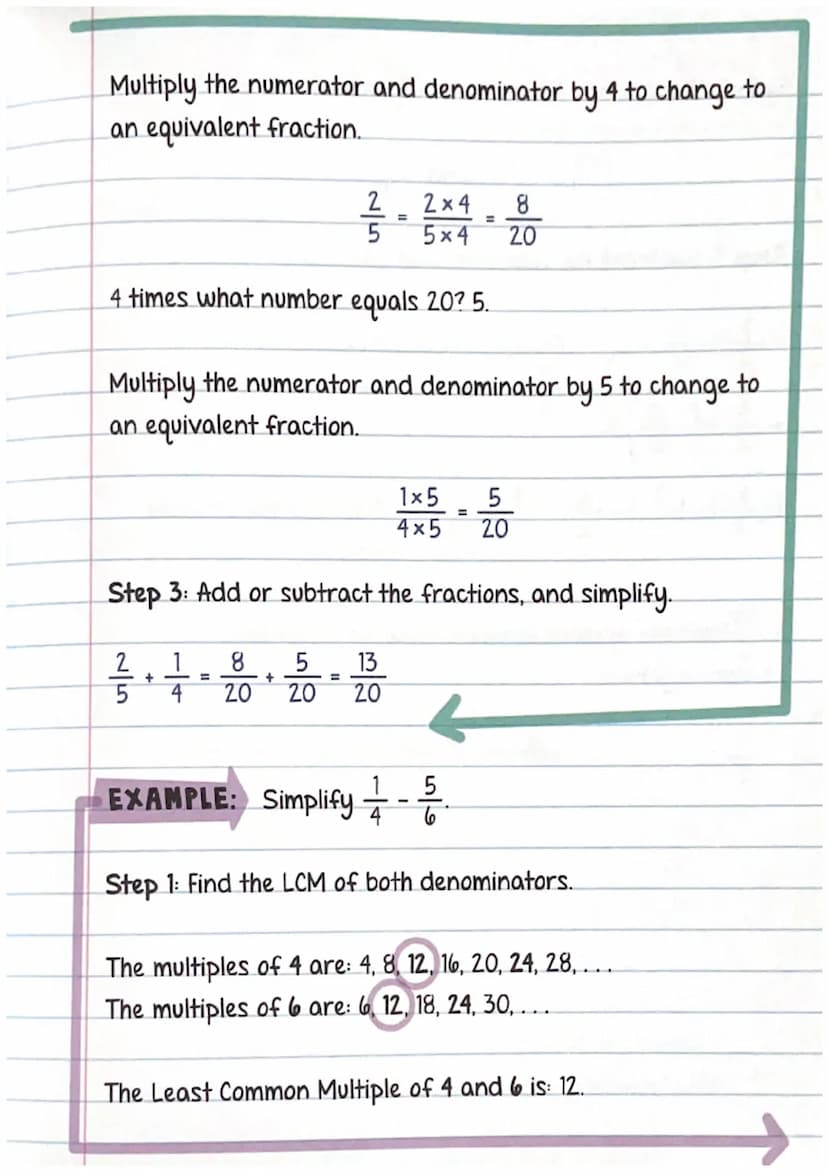 Multiply the numerator and denominator by 4 to change to
an equivalent fraction.
2/5 = 2 x 4/5 x 4 = 8/20
4 times what number equals 20? 5.
Multiply the numerator and denominator by 5 to change to
an equivalent fraction.
1 x 5/4 x 5 = 5/20
Step 3: Add or subtract the fractions, and simplify.
2/5 + 1/4 = 8/20 + 5/20 = 13/20
EXAMPLE: Simplify 1/4 - 5/6.
Step 1: Find the LCM of both denominators.
The multiples of 4 are: 4, 8, 12, 16, 20, 24, 28, . . .
The multiples of 6 are: 6, 12, 18, 24, 30, . . .
The Least Common Multiple of 4 and 6 is: 12.